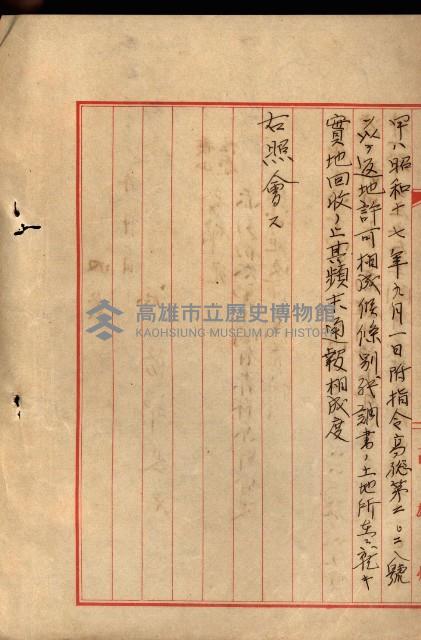 甲八昭和十七年九月一日附指令高総第二〇二八號
ヲ以テ返地許可相成候條別紙調書ノ土地所在ニ就キ
實地回收ノ上其顛末通報相成度
右照會ス
高雄市立歷史博物館
KAOHSIUNG MUSEUM OF HISTORY